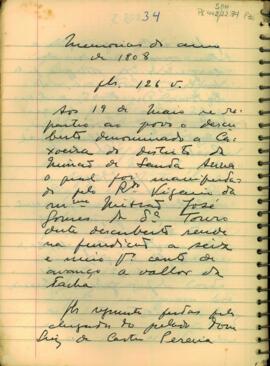 34
Memorias do anno
de 1808
fls. 126 v.
Aos 19 de Maio se re-
partio ao povo o descu-
berto denominado a Ca-
xoeira do districto da
Missão de Santa Anna
o qual foi manifestado
pelo Rdo Vigario da
mma Missão José
Gomes de Sª
este descuberto rende
na fundição a seiz
e meio pr cento de
avanço a vallor da
tacha
fls seguintes festas pela
chegada do Dom
Luiz de Castro Pereira